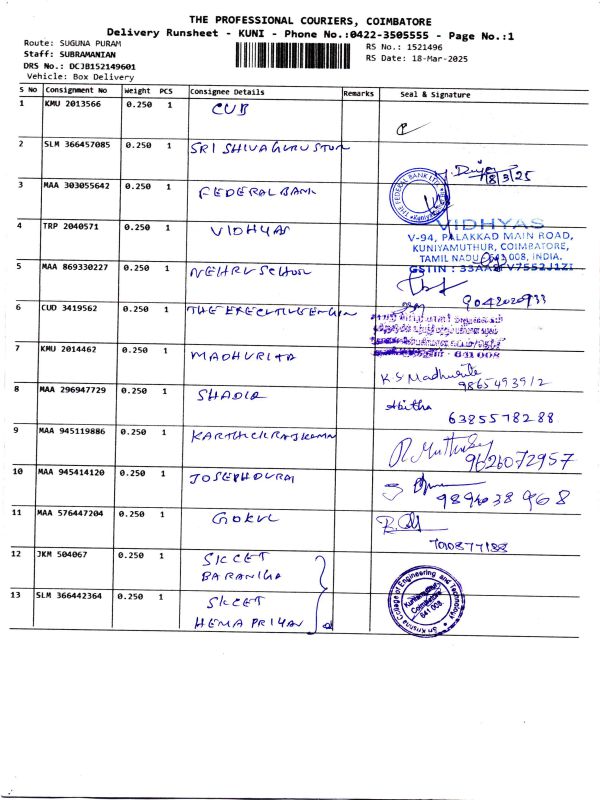 THE PROFESSIONAL COURIERS, COIMBATORE
Delivery Runsheet - KUNI - Phone No.:0422-3505555 - Page No.:1
Route: SUGUNA PURAM
RS No.: 1521496
Staff: SUBRAMANIAN
RS Date: 18-Mar-2025
DRS No.: DCJB152149601
Vehicle: Box Delivery
S No Consignment No Weight PCS Consignee Details Remarks Seal & Signature
1 KMU 2013566 0.250 1 CUB
2 SLM 366457085 0.250 1 SRI SHIVAGURU
3 MAA 303055642 0.250 1 FEDERAL BANK
THE FEDERAL BANK LTD
18/3/25
4 TRP 2040571 0.250 1 VIDHYAS
VIDHYAS
V-94, PALAKKAD MAIN ROAD,
KUNIYAMUTHUR, COIMBATORE,
TAMIL NADU 641 008, INDIA.
5 MAA 869330227 0.250 1 NEHRU SCHOOL
9042020933
6 CUD 3419562 0.250 1 THE EXECUTIVE ENGIN
641 008
7 KMU 2014462 0.250 1 MADHURITA
K S Madhurita
9865493912
8 MAA 296947729 0.250 1 SHADIQ
Abitha
6385578288
9 MAA 945119886 0.250 1 KARTHICK RAJKUMAR
9626072957
10 MAA 945414120 0.250 1 JOSEPHDURAI
9894038968
11 MAA 576447204 0.250 1 GOKUL
12 JKM 504067 0.250 1 SKCET
BARANIKA
13 SLM 366442364 0.250 1 SKCET
HEMA PRIYAN
Sri Krishna College of Engineering and Technology
Kuniyamuthur,
Coimbatore
641 008.